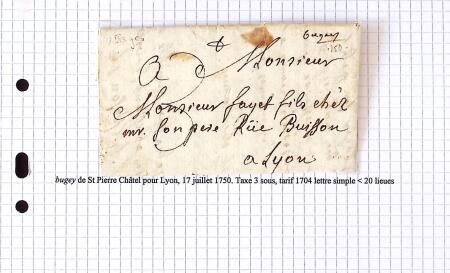 bugey
A Monsieur
Monsieur fayet fils chéz
mr. son pere Rüe Buisson
a Lyon
bugey de St Pierre Châtel pour Lyon, 17 juillet 1750. Taxe 3 sous, tarif 1704 lettre simple < 20 lieues